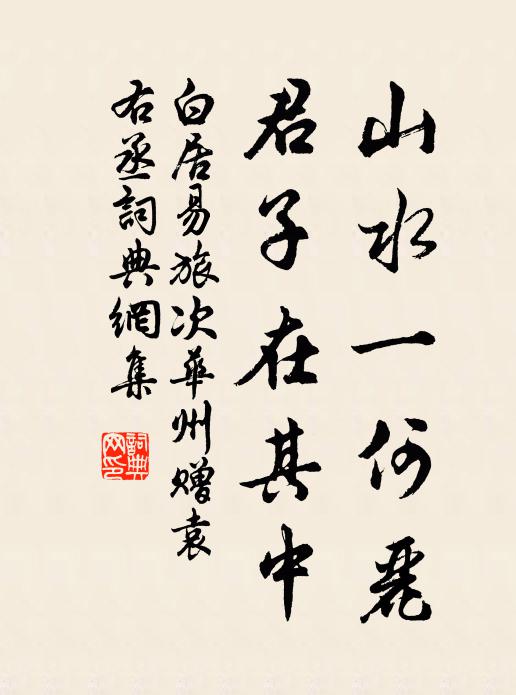 山水一何麗
君子在其中
白居易旅次華州贈袁
右丞詞典網集
詞典網印